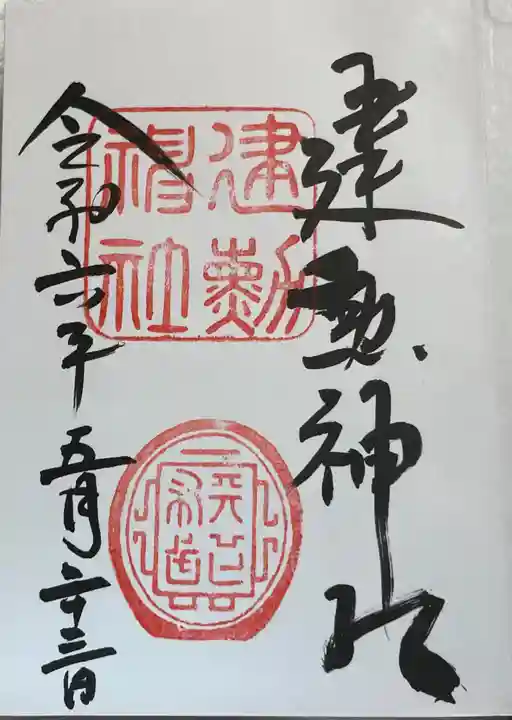 建勲神社
建勲
神社
令和六年五月二十三日